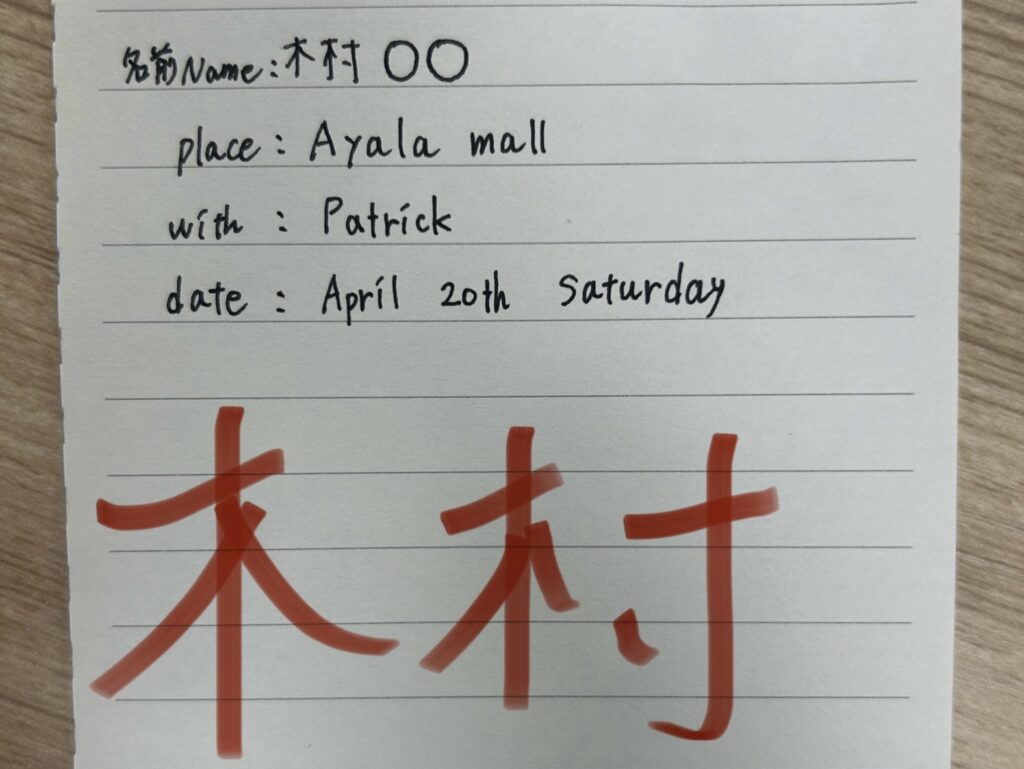 名前Name:木村 〇〇
place : Ayala mall
with : Patrick
date : April 20th Saturday
木村